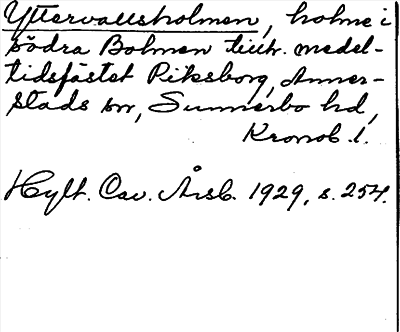 Yttervallsholmen, holme i
södra Bolmen tillh. medel-
tidsfästet Piksborg, Anner-
stads sn, Sunnerbo hd,
Kronob. l.
Hylt. Cav. Årsb. 1929, s. 254.